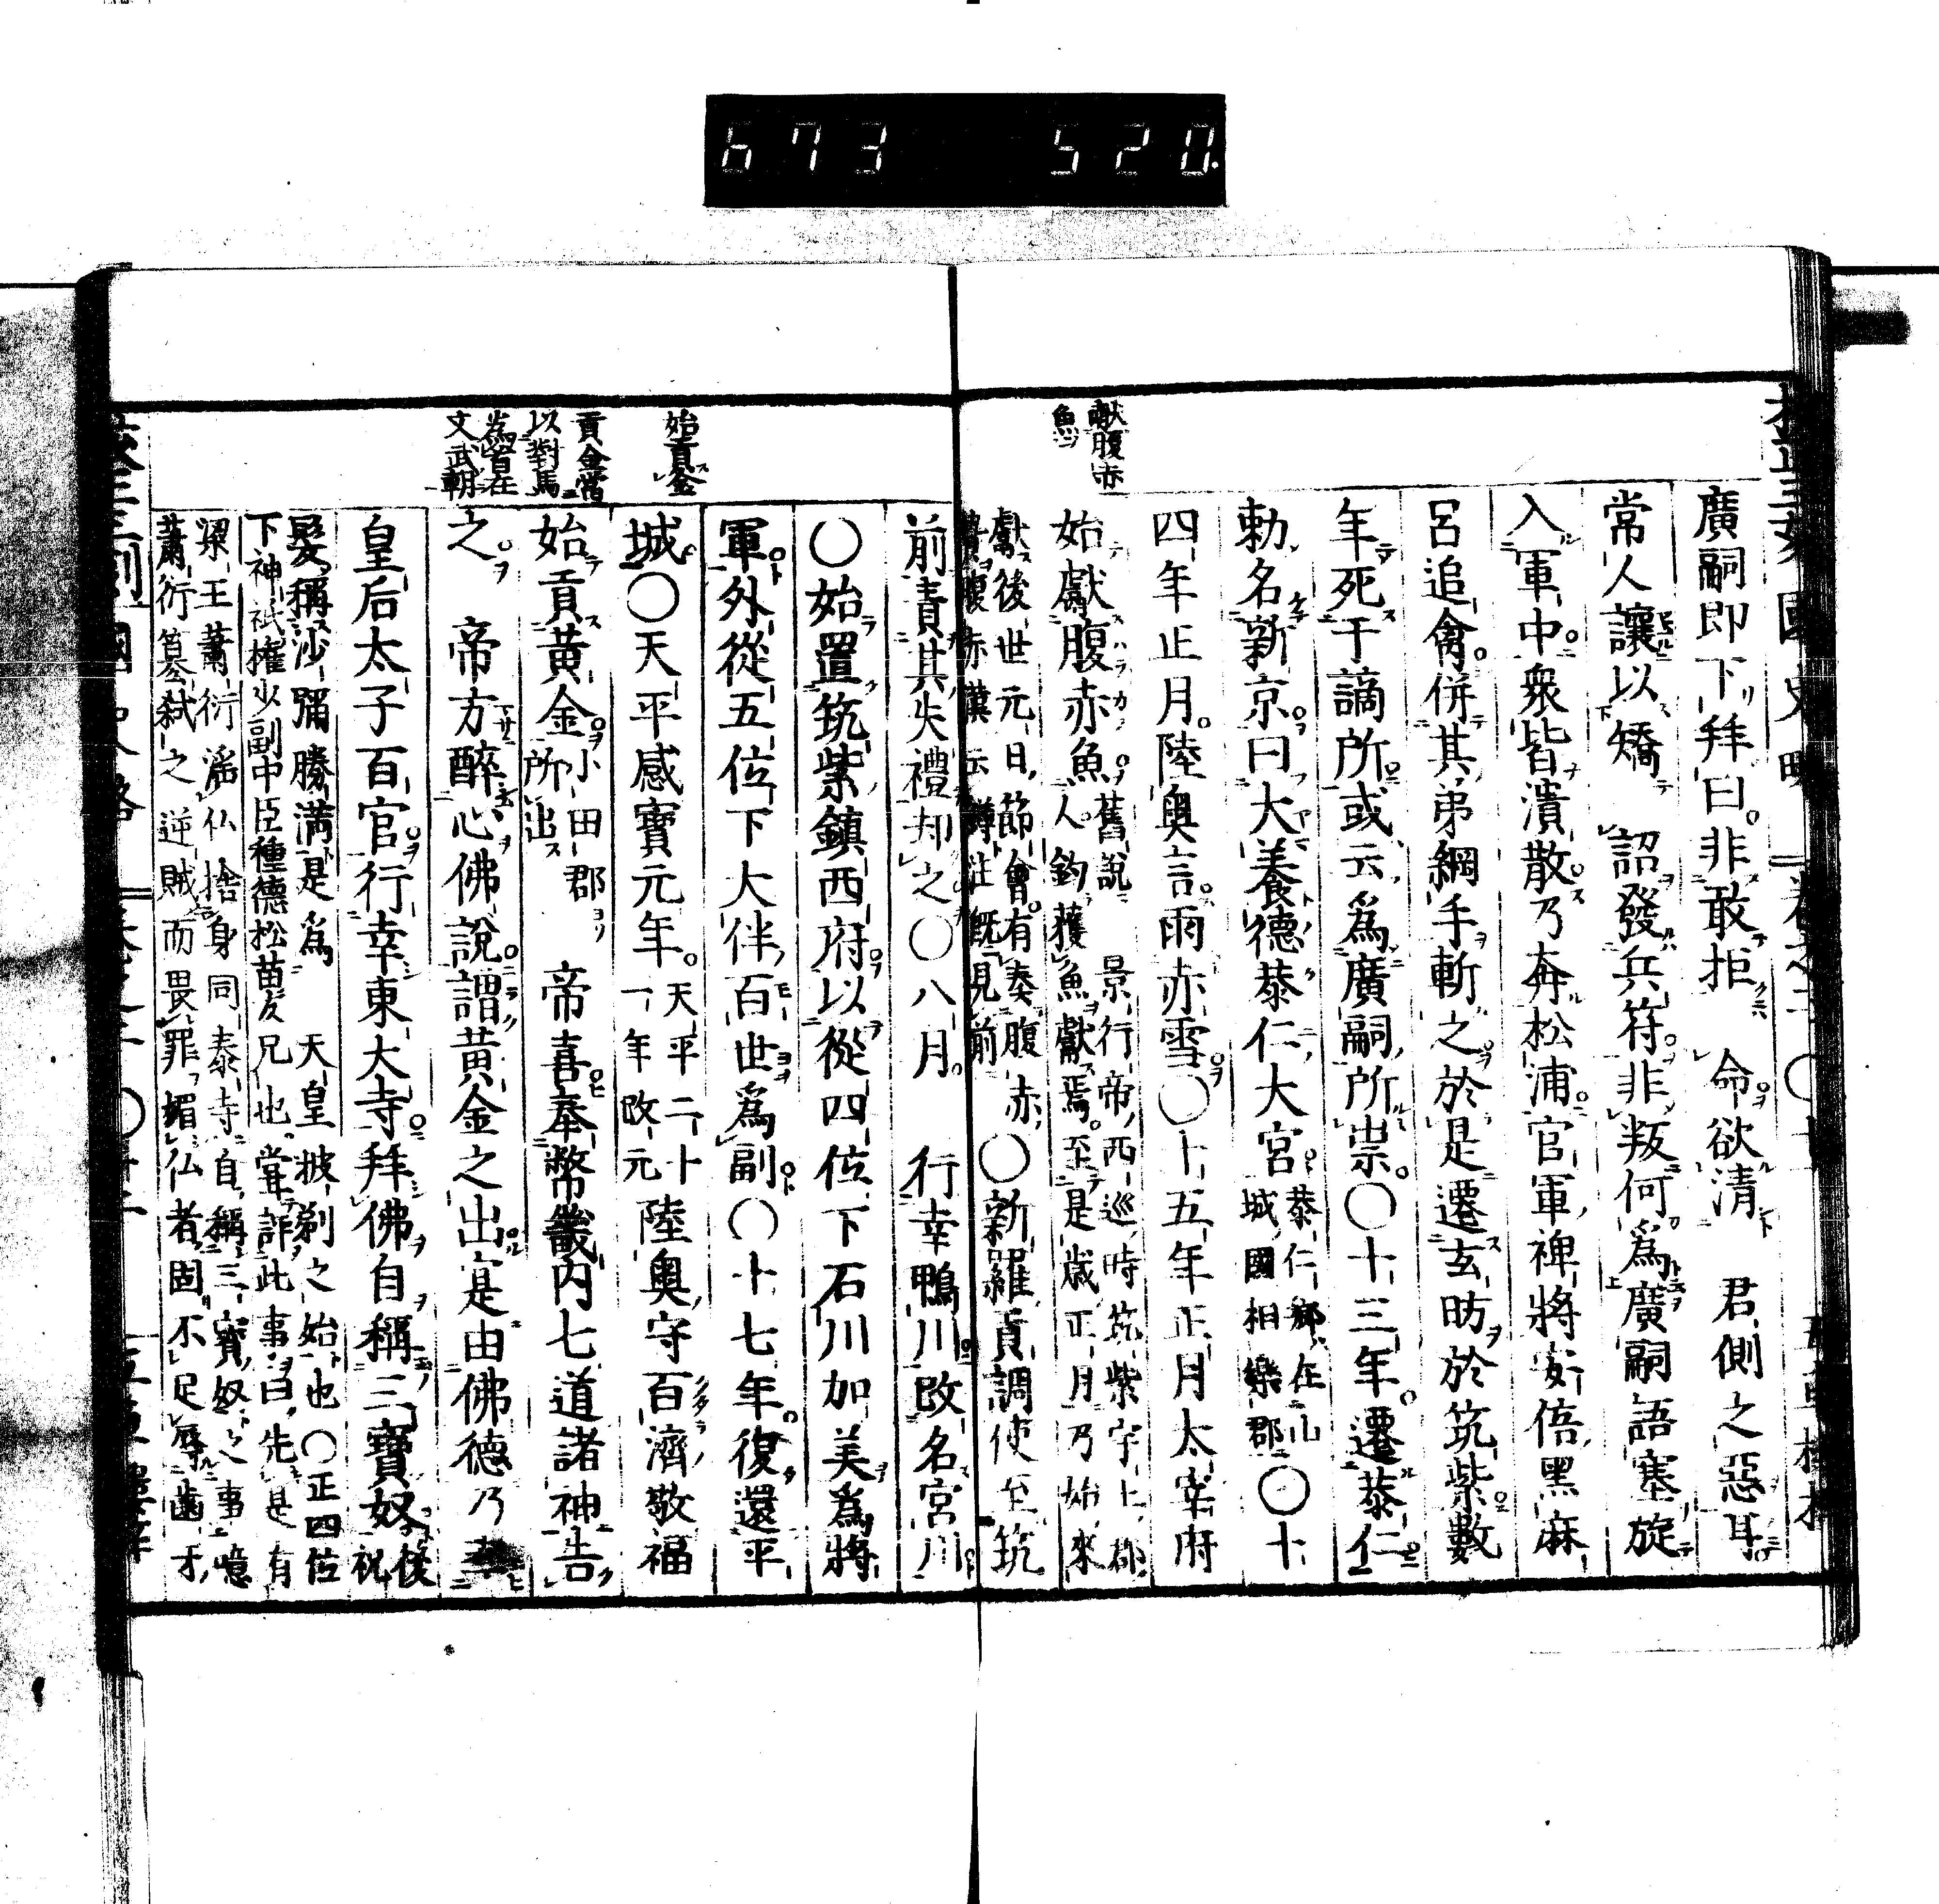 673 520.
獻腹赤
魚
廣嗣即下拜曰。非敢拒 命欲清 君側之惡耳
常人讓以矯 詔發兵符。非叛何爲。廣嗣語塞旋
入軍中。衆皆潰散。乃奔松浦。官軍裨將安倍黑麻
呂追禽。併其弟綱手斬之。於是遷玄昉於筑紫。數
年死于謫所。或云爲廣嗣所祟。○十三年。遷恭仁
勅名新京。曰大養德恭仁大宮 恭仁鄉在山
城國相樂郡 ○十
四年正月。陸奧言。雨赤雪。○十五年正月太宰府
始獻腹赤魚 舊說 景行帝西巡時筑紫宇土郡
人釣獲魚獻焉。至是歲正月乃始來
獻後世元日節會。有奏腹赤
腹赤漢云鱒注既見前 ○新羅貢調使至筑
前責其失禮却之○八月 行幸鴨川改名宮川
○始置筑紫鎮西府。以從四位下石川加美爲將
軍。外從五位下大伴百世爲副○十七年。復還平
城○天平感寶元年。 天平二十
一年改元 陸奧守百濟敬福
始貢黃金 小田郡
所出 帝喜奉幣畿内七道諸神告
之。 帝方醉心佛說謂黃金之出寔由佛德乃
皇后太子百官行幸東大寺拜佛自稱三寶奴 後祝
髮稱沙彌勝滿是爲 天皇披剃之始也 ○正四位
下神祇權少副中臣種德松苗友兄也嘗詐此事曰先是有
梁王蕭衍滛仏捨身同泰寺自稱三寶奴之事噫
蕭衍篡弑之逆賊而畏罪媚仏者固不足辱齒牙
始貢金
貢金當
以對馬
爲首在
文武朝